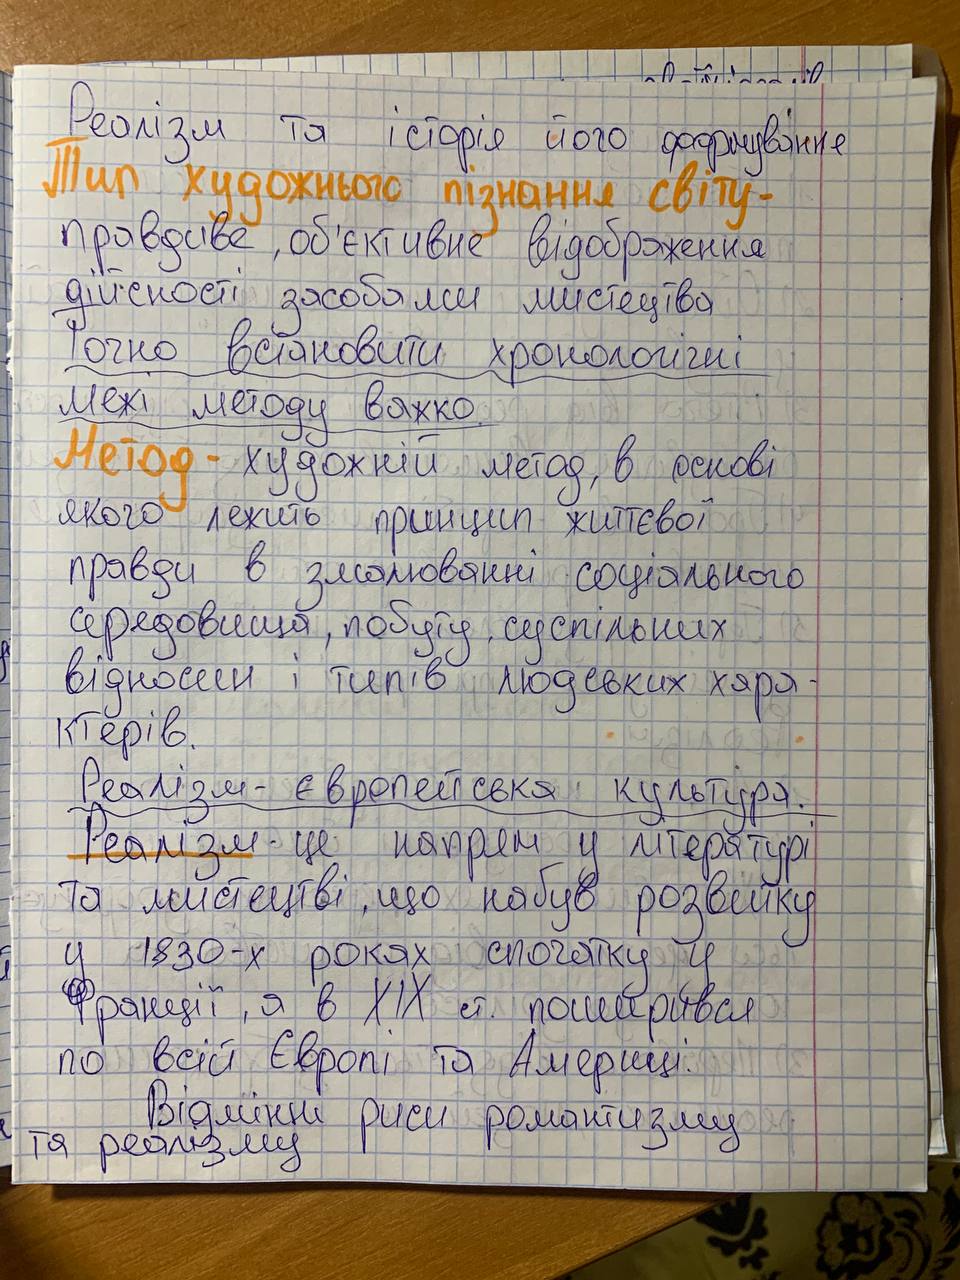 Реалізм та історія його формування
Тип художнього пізнання світу-
правдиве, об'єктивне відображення
дійсності засобами мистецтва
Точно встановити хронологічні
межі методу важко.
Метод- художній метод, в основі
якого лежить принцип життєвої
правди в змалюванні соціального
середовища, побуту, суспільних
відносин і типів людських хара-
ктерів.
Реалізм- європейська культура.
Реалізм-це напрям у літературі
та мистецтві, що набув розвитку
у 1830-х роках спочатку у
Франції, а в ХІХ ст. поширився
по всій Європі та Америці.
Відмінни риси романтизму
та реалізму